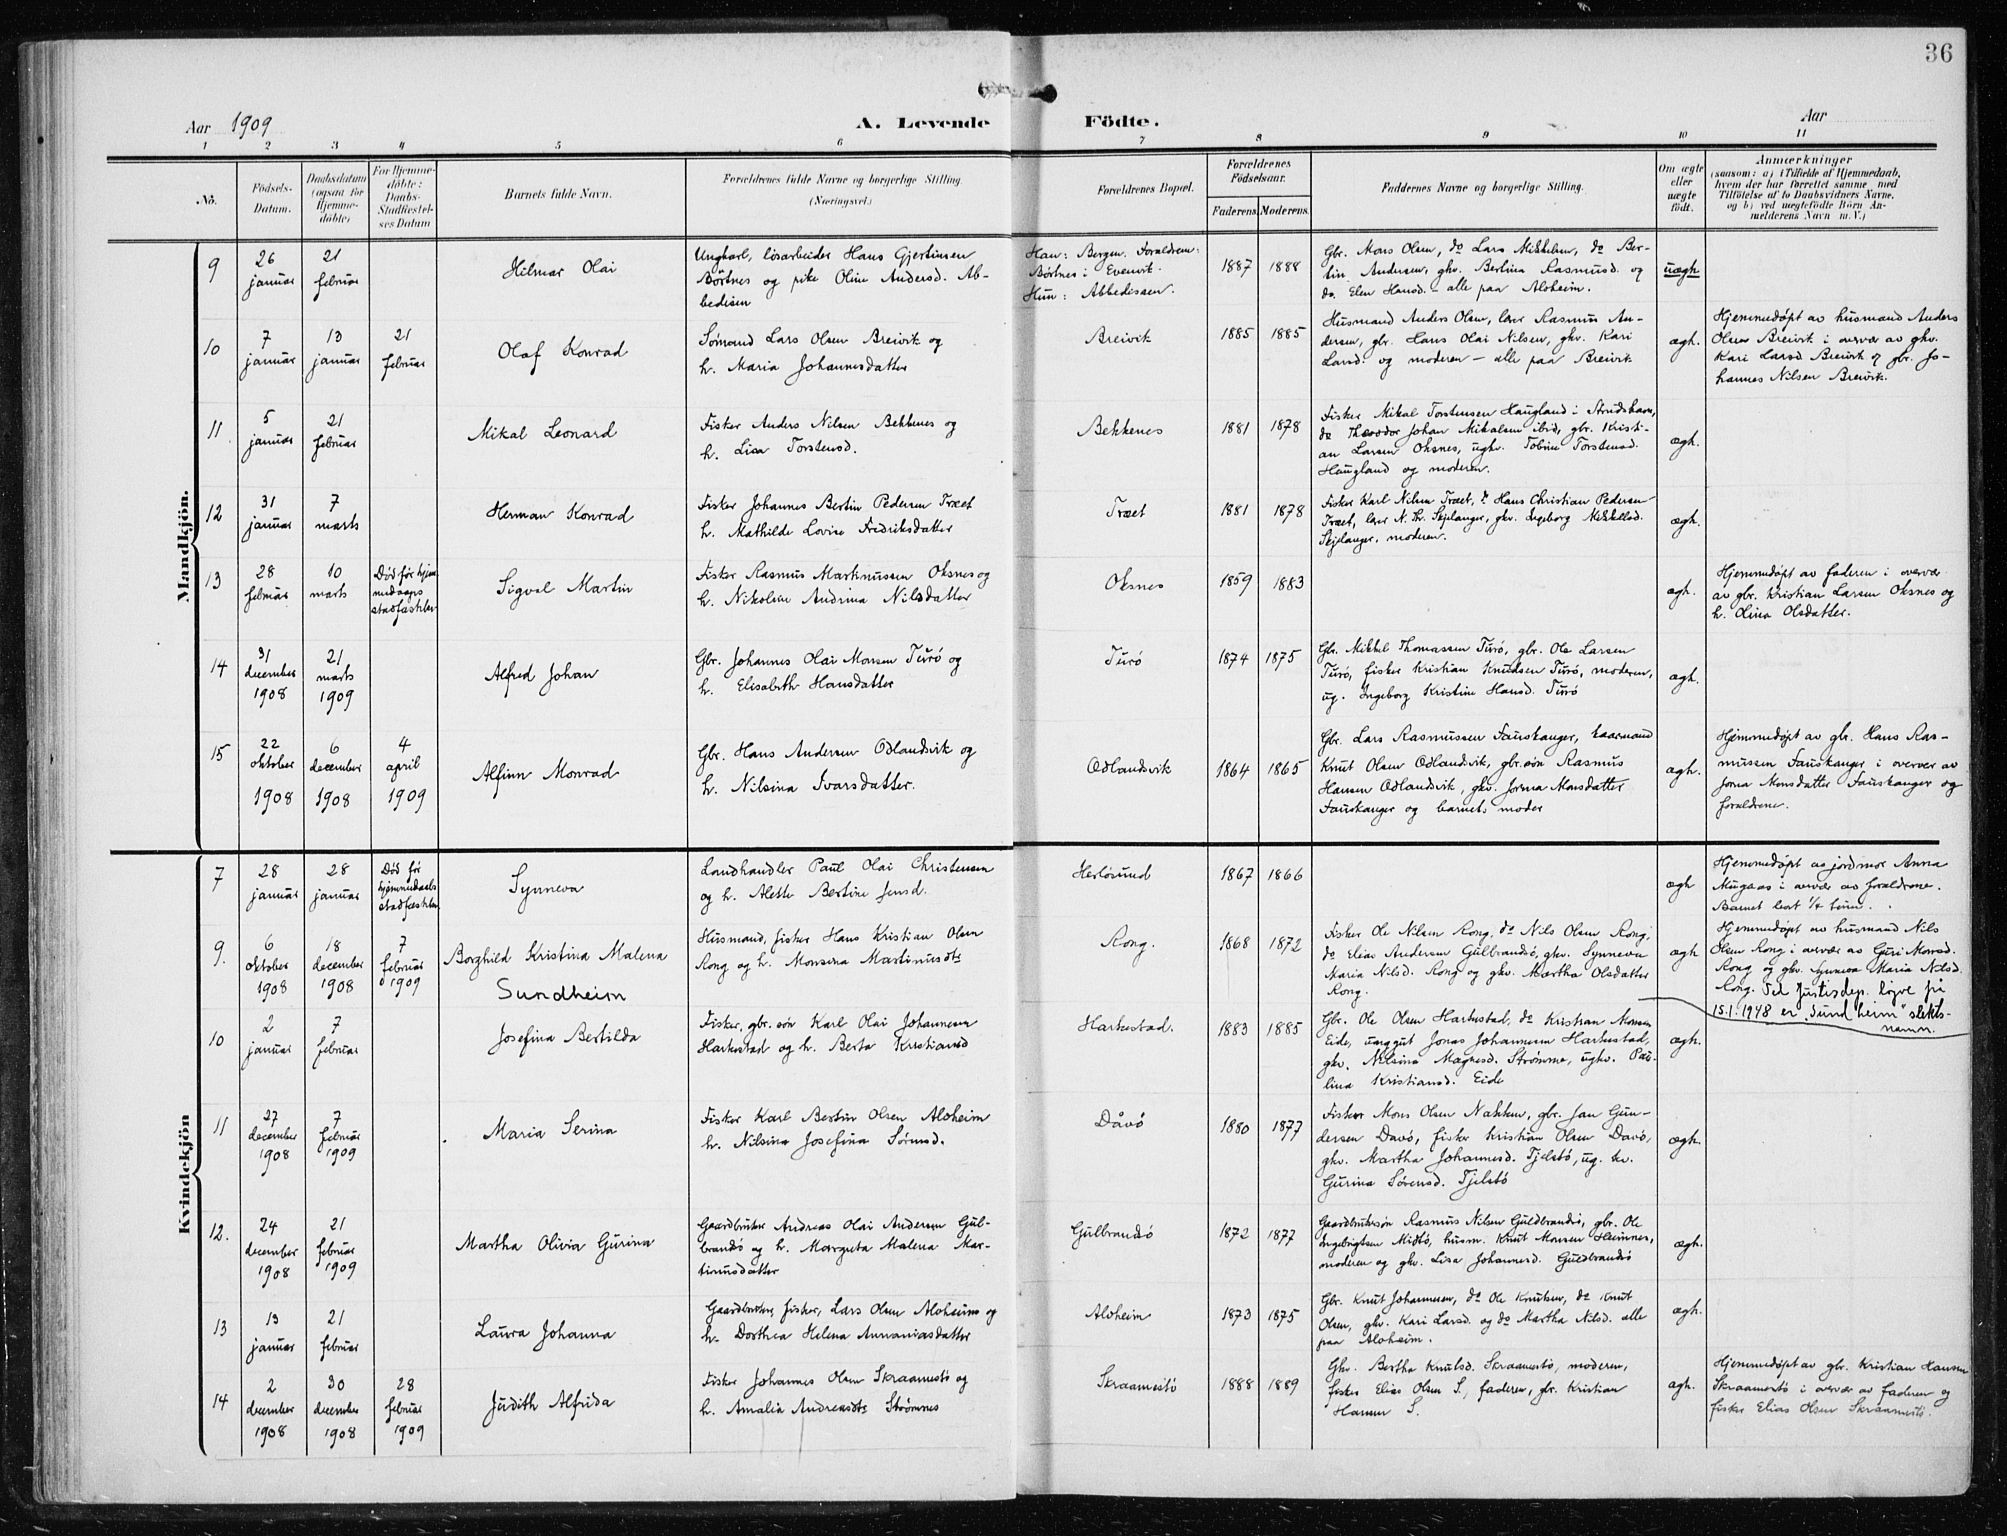 36
Aar 1909
A. Levende Födte.
Aar
1 2 3 4 5 6 7 8 9 10 11
No.
Födsels-
Datum.
Daabsdatum
(ogsaa for
Hjemme-
döbte)
For Hjemme-
döbte:
Daabs-
Stadfæstel-
ses Datum
Barnets fulde Navn.
Forældrenes fulde Navne og borgerlige Stilling.
(Næringsvei.)
Forældrenes Bopæl.
Forældrenes
Födselsaar.
Faderens. Moderens.
Faddernes Navne og borgerlige Stilling.
Om ægte
eller
uægte
födt.
Anmærkninger
(saasom: a) i Tilfælde af Hjemmedaab,
hvem der har forrettet samme med
Tilföielse af to Daabsvidners Navne,
og b) ved uægtefödte Börn An-
melderens Navn m. V.)
Mandkjön.
9
26
januar
21
februar
Hilmar Olai
Ungkarl, løsarbeider Hans Gjertinsen
Börtnes og pike Oline Andersd. Ab-
bedisen
Han: Bergen. Forældrene:
Børtnes i Evenvik.
Hun: Abbedissen.
1887 1888
Gbr. Mons Olsen, do Lars Mikkelsen, do Ber-
tin Andersen, gkv. Bertina Rasmusd. og
do. Elen Hansd. - alle paa Aloheim.
uægh
10
7
januar
13
januar
21
februar
Olaf Konrad
Sømand Lars Olsen Breivik og
h. Maria Johannesdatter
Breivik
1885 1885
Husmand Anders Olsen, lærer Rasmus An-
dersen, gbr. Hans Olai Nilsen, gkv. Kari
Larsd. og moderen - alle paa Breivik
ægh.
Hjemmedøpt av husmand Anders
Olsen Breivik i overvær av gkv.
Kari Larsd Breivik og gbr. Jo-
hannes Nilsen Breivik.
11
5
januar
21
februar
Mikal Leonard
Fisker Anders Nilsen Bekkenes og
h. Lisa Torstensd.
Bekkenes
1881 1878
Fisker Mikal Torstensen Haugland i Strudshavn,
do Theodor Johan Mikalsen ibid, gbr. Kristi-
an Larsen Oksnes, ugkv. Tobine Torstensd.
Haugland og moderen.
ægh.
12
31
januar
7
marts
Herman Konrad
Fisker Johannes Bertin Pedersen Træet
h. Mathilde Lovise Fredriksdatter
Træet
1881 1878
Fisker Karl Nilsen Træet, do Hans Christian Pedersen
Træet, lærer N. Th. Skjelanger, gkv. Ingeborg Mikkelsd.
Skjelanger, moderen.
ægh.
13
28
februar
10
marts
Død før hjem
medaaps
stadfæstelsen
Sigval Martin
Fisker Rasmus Martinussen Oksnes og
h. Nikoline Andrina Nilsdatter
Oksnes
1859 1883
ægh.
Hjemmedøpt av faderen i overvær
av gbr. Kristian Larsen Oksnes og
h. Olina Olsdatter.
14
31
december
1908
21
marts
1909
Alfred Johan
Gbr. Johannes Olai Monsen Turö og
h. Elisabeth Hansdatter
Turö
1874 1875
Gbr. Mikkel Thomassen Turö, gbr. Ole Larsen
Turö, fisker Kristian Knudsen Turö, moderen,
ug. Ingeborg Kristine Hansd. Turö
ægh.
15
22
oktober
1908
6
december
1908
4
april
1909
Alfinn Monrad
Gbr. Hans Andersen Odlandsvik og
h. Nilsina Ivarsdatter.
Odlandsvik
1864 1865
Gbr. Lars Rasmussen Fauskanger, kaarmand
Knut Olsen Odlandsvik, gbr.søn Rasmus
Hansen Odlandsvik, gkv. Jorina Monsdatter
Fauskanger og barnets moder
ægh.
Hjemmedøpt av gbr. Hans Ras-
mussen Fauskanger i overvær av
Jorna Monsdatter Fauskanger og
forældrene.
Kvindekjön
7
28
januar
28
januar
Død før
hjemmedaabs
stadfæstelsen
Synneva
Landhandler Paul Olai Christensen
og h. Alette Bertine Jensd.
Herløsund
1867 1866
ægh
Hjemmedøpt av jordmor Anna
Mugaas i overvær av forældrene.
Barnet levet 1/4 time.
9.
6
oktober
1908
18
december
1908
7
februar
1909
Borghild Kristina Malena
Sundheim
Husmand, fisker Hans Kristian Olsen
Rong og h. Monsina Martinusdtr
Rong.
1868 1872
Fisker Ole Nilsen Rong, do Nils Olsen Rong,
do Elias Andersen Gulbrandsö, gkv. Synneva
Maria Nilsd. Rong og gkv. Martha Olsdatter
Rong.
ægh
Hjemmedøpt av husmand Nils
Olsen Rong i overvær av Guri Monsd.
Rong og gkv. Synneva Maria Nilsd.
Rong. Ved Justisdep. løyve på
15.1.1948 er "Sundheim" slekts-
namn.
10
2
januar
7
februar
Josefina Bertilda
Fisker, gbr. søn Karl Olai Johannesen
Harkestad og h. Berta Kristiansd
Harkestad.
1883 1885
Gbr. Ole Olsen Harkestad, do Kristian Monsen
Eide, unggut Jonas Johannesen Harkestad,
gkv. Nilsina Magnesd. Strømme, ugkv. Pau-
lina Kristiansd. Eide
ægh.
11
27
december
1908
7
februar
1909
Maria Serina
Fisker Karl Bertin Olsen Aloheim
h. Nilsina Josefina Sörensd.
Dåvö
1880 1877
Fisker Mons Olsen Nakken, gbr. Jan Gun-
dersen Davö, fisker Kristian Olsen Davö,
gkv. Martha Johannesd. Tjelstö, ug. kv.
Gurina Sörensd. Tjelstö
ægh.
12.
24
december
1908
21
februar
1909
Martha Olivia Gurina
Gaardbruker Andreas Olai Andersen Gul-
brandsö og h. Margreta Malena Mar-
tinusdatter
Gulbrandsö
1872 1877
Gaardbrukersøn Rasmus Nilsen Guldbrandsö, gbr. Ole
Ingebrigtsen Midtö, husm. Knut Monsen Heimnes,
moderen og gkv. Lisa Johannesd. Guldbrandsö
ægh.
13
19
januar
21
februar
Laura Johanna
Gaardbruker, fisker, Lars Olsen Aloheim og
h. Dorthea Helena Annaniasdatter
Aloheim
1873 1875
Gbr. Knut Johannesen, do Ole Knutsen, do Knut
Olsen, gkv. Kari Larsd. og do Martha Nilsd. alle
paa Aloheim.
ægh.
14
2
december
1908
30
december
1908
28
februar
1909
Judith Alfrida
Fisker Johannes Olsen Skraamestö og
h. Amalia Andreasdtr Strømnes
Skraamestö
1888 1889
Gkv. Bertha Knutsd. Skraamestö, moderen,
fisker Elias Olsen S., faderen, gbr. Kristian
Hansen S.
ægh.
Hjemmedøpt av gbr. Kristian Hansen
Skraamestö i overvær av faderen og
fisker Elias Olsen Skraamestö.